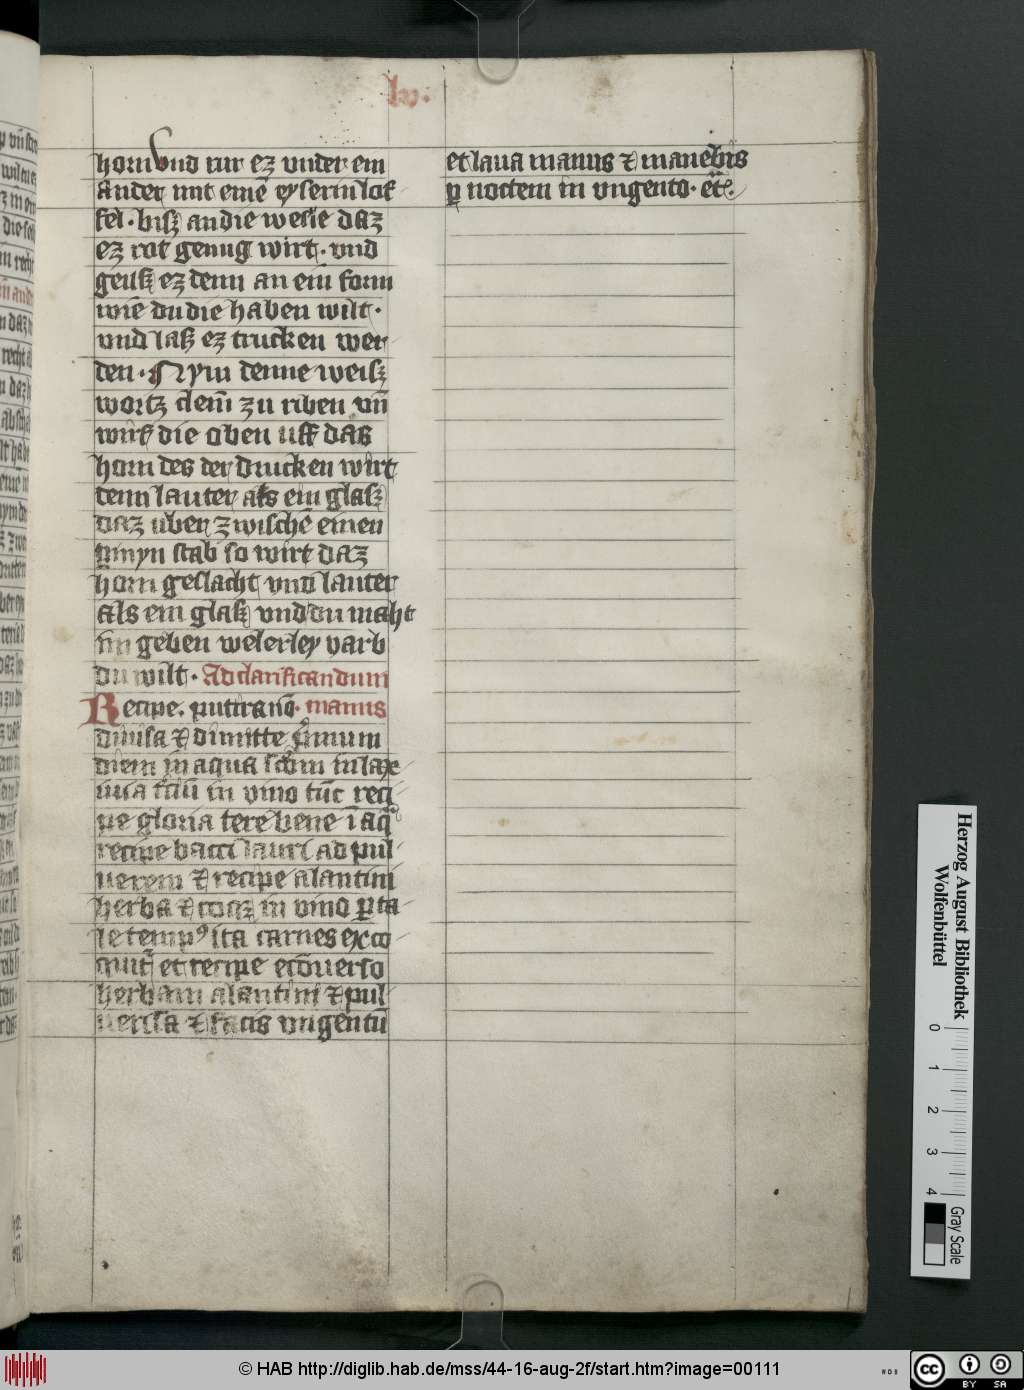 lv.
horn vnd rur ez vnder ein
ander mit einē eyserin lof
fel · bisz an die weile daz
ez rot genug wirt · vnd
geusz ez denn an ein form
wie du die haben wilt ·
vnd lasz ez trucken wer
den · Nym denne weisz
wortz clein zu riben vn̄
wurf die oben uff das
horn des der drucken wirt
denn lauter als ein glasz
daz uber zwischē einen
stab so wirt daz
horn geslacht vnd lauter
als ein glasz vnd du maht
im geben welerley varb
du wilt · Ad clarificandum
Recipe · manus
diuisa ⁊ dimitte pͥmum
diem in aqua
in vino tūc reci
pe gloria tere bene ī aq̄
recipe bacci lauri ad pul
uerem ⁊ recipe alantini
herba ⁊ coqz in vino ꝑ ta
le tempꝰ ita carnes exco
et recipe ecōuerso
herbam alantini ⁊ pul
uerisa ⁊ facis vngentū
et laua manus ⁊ manebis
ꝑ noctem in vngento · etc̄.
Herzog August Bibliothek
Wolfenbüttel
0 1 2 3 4
Gray Scale
© HAB http://diglib.hab.de/mss/44-16-aug-2f/start.htm?image=00111
WDB
cc BY SA